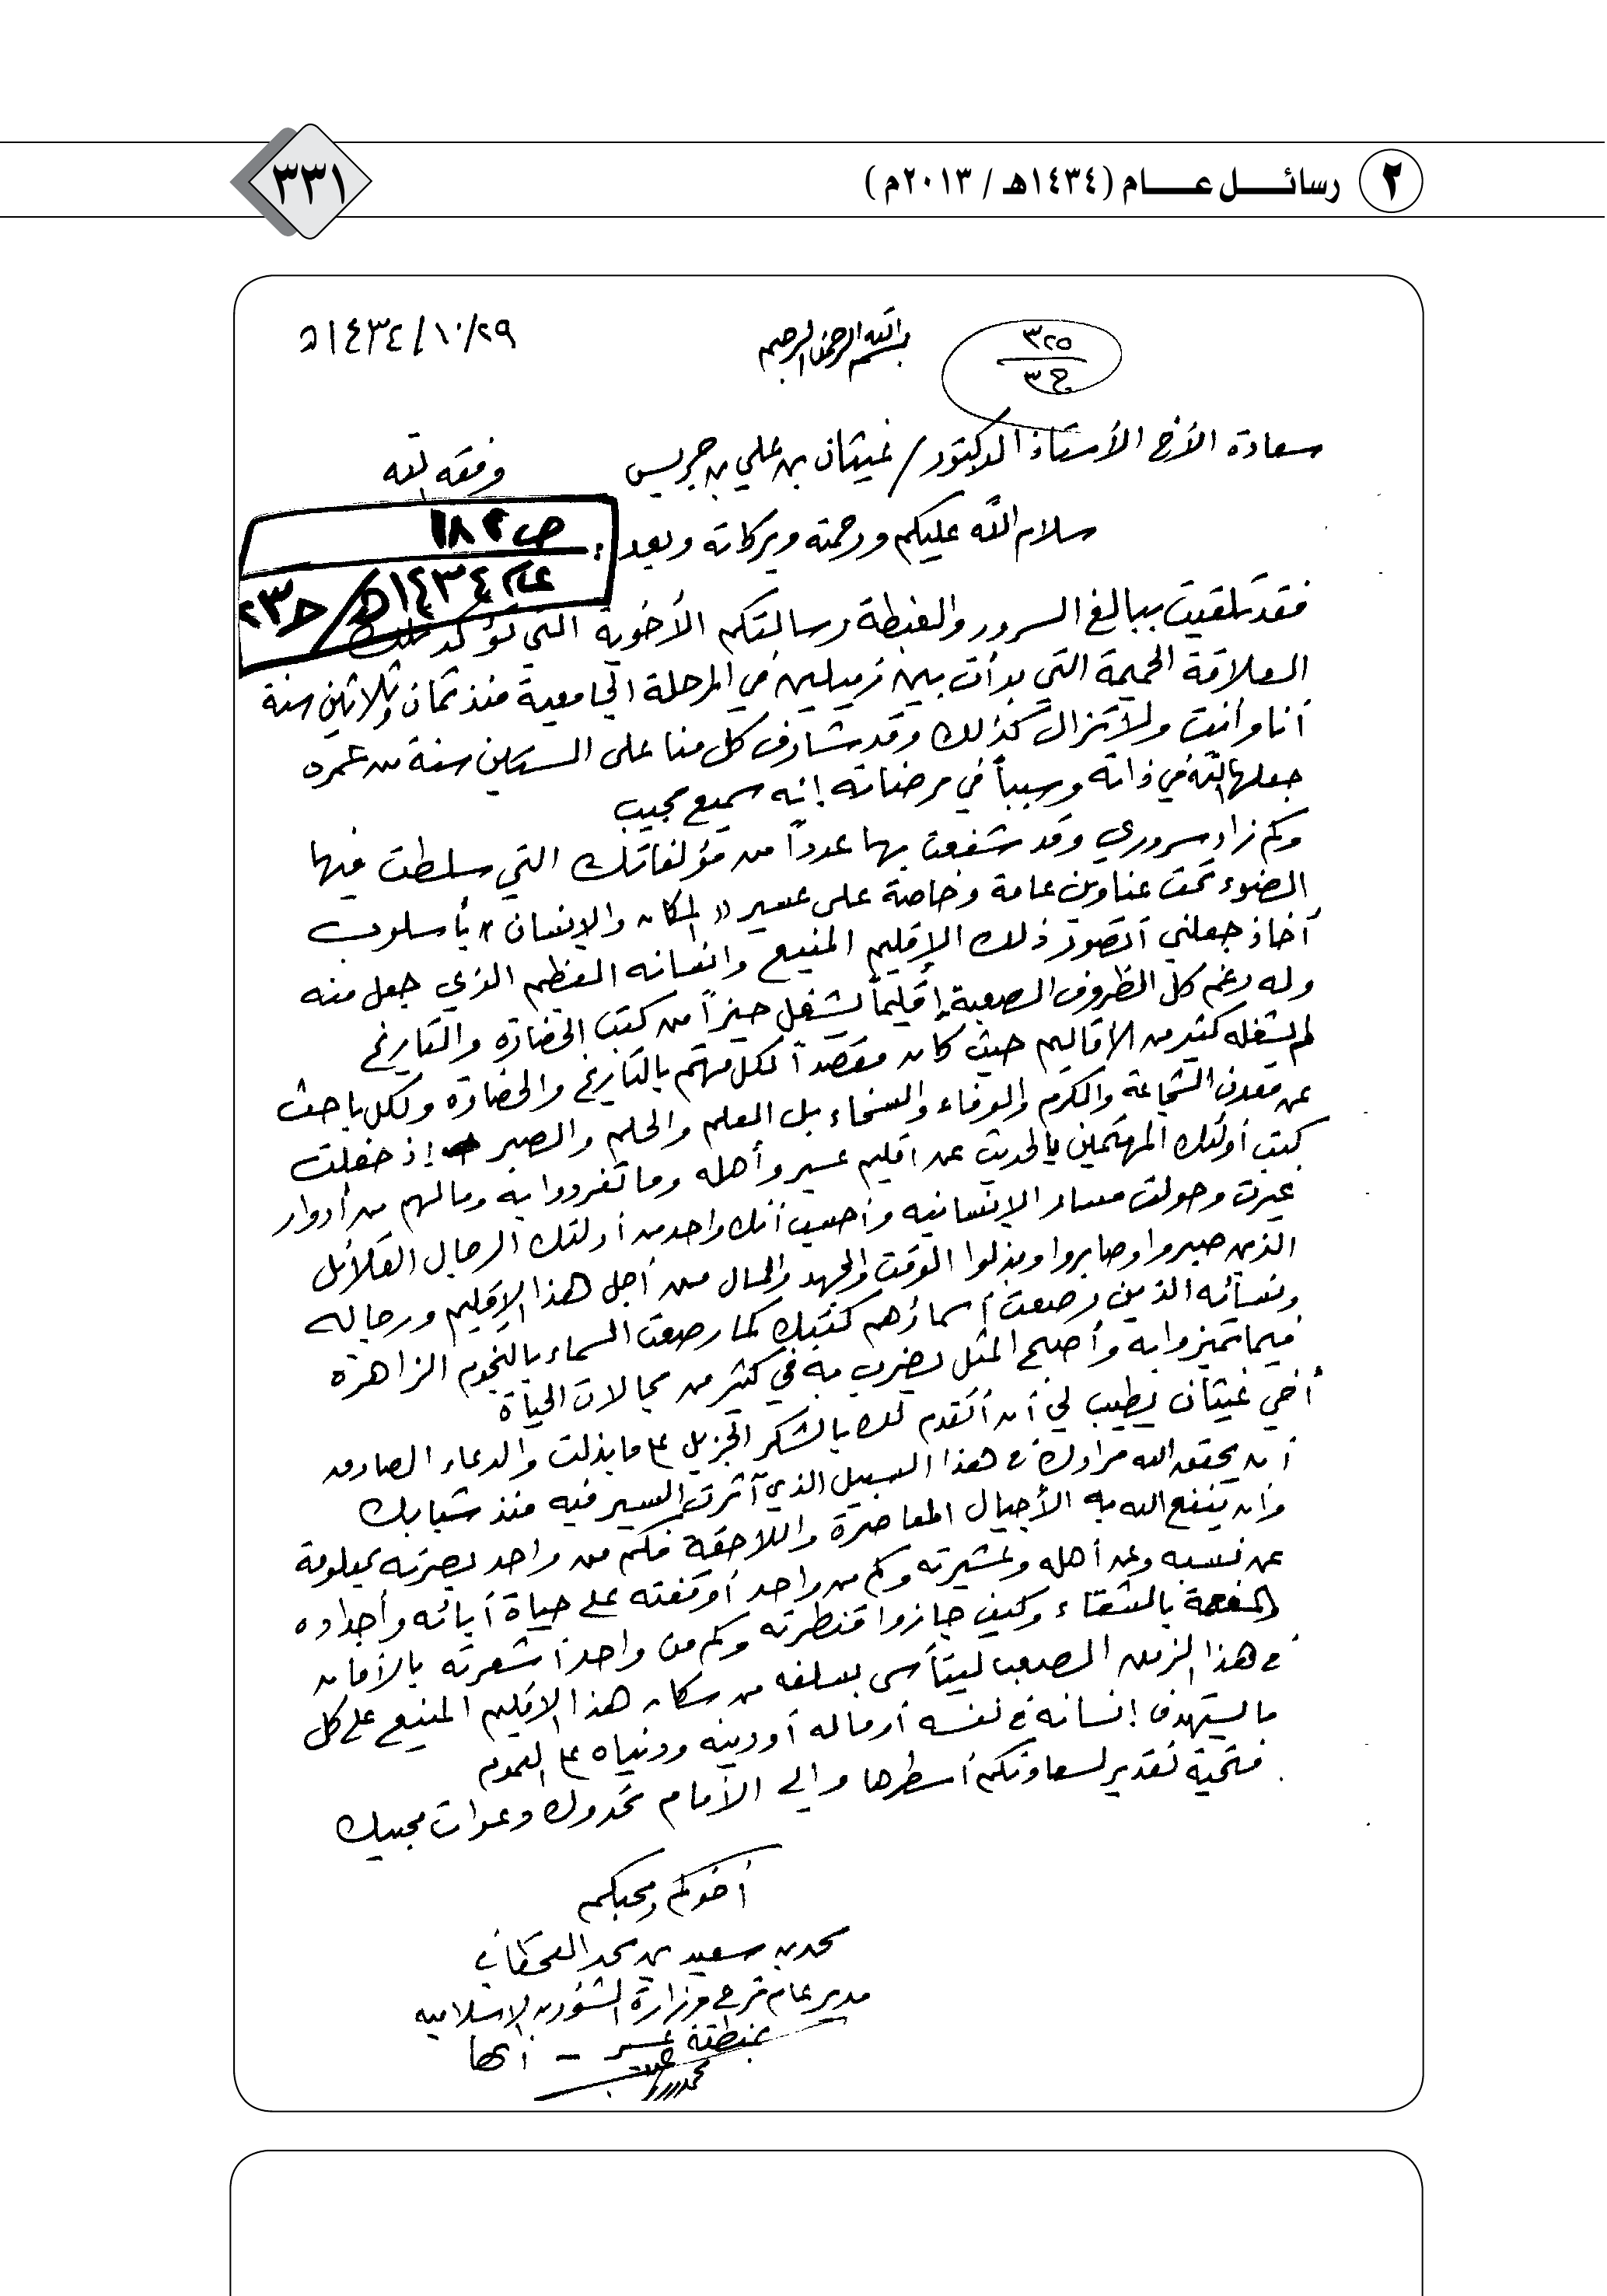 ٢ رسائل عام (١٤٣٤هـ / ٢٠١٣م)
٣٣١
٣٢٥
ج٣
بسم الله الرحمن الرحيم
٢٩/١٠/١٤٣٤هـ
سعادة الأخ الأستاذ الدكتور/ غيثان بن علي بن جريس وفقه الله
سلام الله عليكم ورحمته وبركاته وبعد :
ص١٨٢
عام ١٤٣٤هـ/ ح٢٣
فقد تلقيت ببالغ السرور والغبطة رسالتكم الأخوية التي تؤكد تلك
العلاقة الحميمة التي بدأت بين زميلين في المرحلة الجامعية منذ ثمان وثلاثين سنة
أنا وأنت ولا تزال كذلك وقد شارف كل منا على الستين سنة من عمره
جعلها الله في ذاته وسبباً في مرضاته إنه سميع مجيب
وكم زاد سروري وقد شفعت بها عدداً من مؤلفاتك التي سلطت فيها
الضوء تحت عناوين عامة وخاصة على عسير « المكان والإنسان » بأسلوب
أخاذ جعلني أتصور ذلك الإقليم المنيع وانسانه العظيم الذي جعل منه
وله رغم كل الظروف الصعبة إقليماً يشغل حيزاً من كتب الحضارة والتاريخ
لم يشغله كثير من الأقاليم حيث كان مقصداً لكل مهتم بالتاريخ والحضارة ولكل باحث
عن معدن الشجاعة والكرم والوفاء والسخاء بل العلم والحلم والصبر إذ حفلت
كتب أولئك المهتمين بالحديث عن اقليم عسير وأهله وما تفردوا به ومالهم من أدوار
غيرت وحولت مسار الإنسانيه وأحسب أنك واحد من أولئك الرجال القلائل
الذين صبروا وصابروا وبذلوا الوقت والجهد والمال من أجل هذا الإقليم ورجاله
ونسائه الذين رصعت أسماؤهم كتبك كما رصعت السماء بالنجوم الزاهرة
فيما تميزوا به وأصبح المثل يضرب به في كثير من مجالات الحياة
أخي غيثان يطيب لي أن أتقدم لك بالشكر الجزيل على ما بذلت والدعاء الصادق
أن يحقق الله مرادك في هذا السبيل الذي آثرت السير فيه منذ شبابك
وأن ينفع الله به الأجيال المعاصرة واللاحقة فكم من واحد بصرته بمعلومة
عن نسبه وعن أهله وعشيرته وكم من واحد أوقفته على حياة أبائه وأجداده
المفعمة بالشقاء وكيف جازوا قنطرته وكم من واحد أشعرته بالأمان
في هذا الزمن الصعب ليتأسى بسلفه من سكان هذا الاقليم المنيع على كل
ما يستهدف إنسانه في نفسه أو ماله أو دينه ودنياه على العموم
فتحية تقدير لسعادتكم أسطرها وإلى الأمام تحدوك دعوات محبيك
أخوكم ومحبكم
محمد بن سعيد بن محمد القحطاني
مدير عام فرع وزارة الشؤون الإسلامية
بمنطقة عسير – أبها